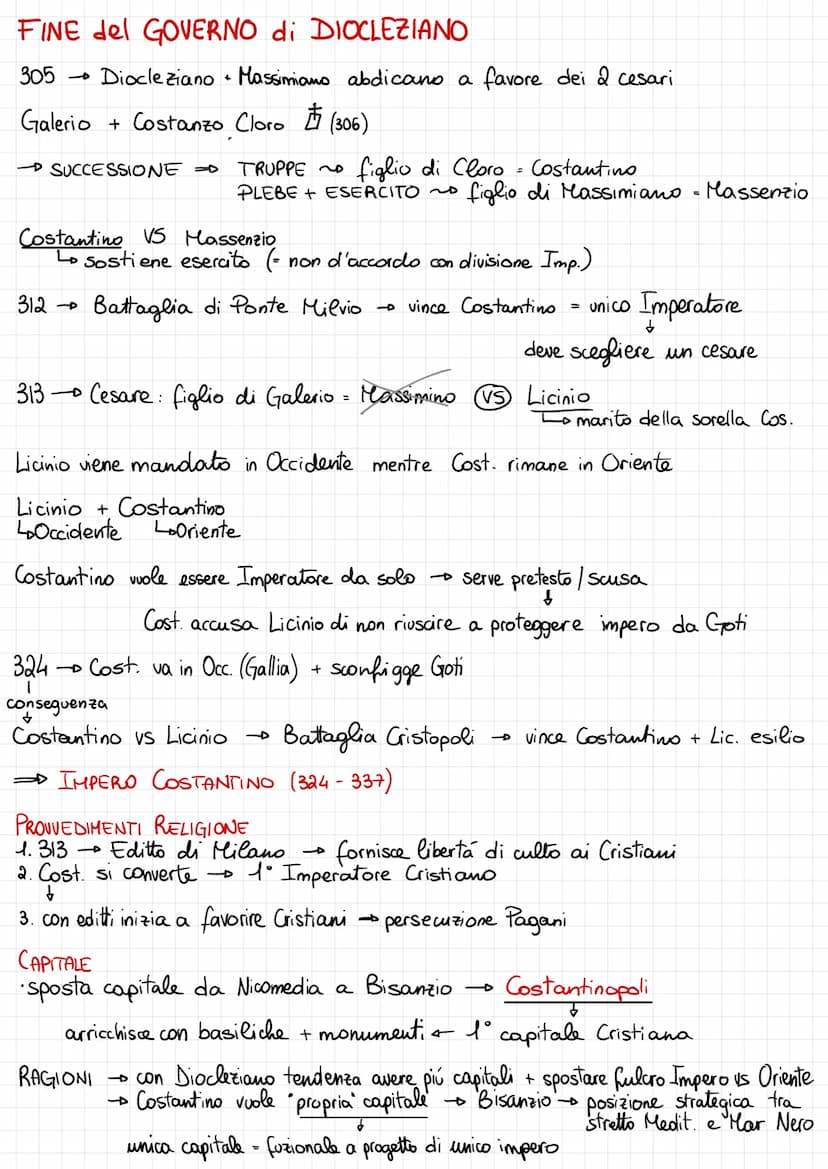 FINE del GOVERNO di DIOCLEZIANO
305 → Diocleziano + Massimiano abdicano a favore dei 2 cesari
Galerio + Costanzo Cloro ✝ (306)
→ SUCCESSIONE ⇒ TRUPPE ~> figlio di Cloro = Costantino
PLEBE + ESERCITO ~> figlio di Massimiano = Massenzio
Costantino VS Massenzio
↳ sostiene esercito (= non d'accordo con divisione Imp.)
312 → Battaglia di Ponte Milvio → vince Costantino = unico Imperatore
↓
deve scegliere un cesare
313 → Cesare: figlio di Galerio = Massimino VS Licinio
↳ marito della sorella Cos.
Licinio viene mandato in Occidente mentre Cost. rimane in Oriente
Licinio + Costantino
↳Occidente ↳Oriente
Costantino vuole essere Imperatore da solo → serve pretesto / scusa
↓
Cost. accusa Licinio di non riuscire a proteggere impero da Goti
324 → Cost. va in Occ. (Gallia) + sconfigge Goti
conseguenza
↓
Costantino vs Licinio → Battaglia Cristopoli → vince Costantino + Lic. esilio
⇒ IMPERO COSTANTINO (324 - 337)
PROVVEDIMENTI RELIGIONE
1. 313 → Editto di Milano → fornisce libertá di culto ai Cristiani
2. Cost. si converte → 1° Imperatore Cristiano
↓
3. con editti inizia a favorire Cristiani → persecuzione Pagani
CAPITALE
· sposta capitale da Nicomedia a Bisanzio → Costantinopoli
↓
arricchisce con basiliche + monumenti ← 1° capitale Cristiana
RAGIONI → con Diocleziano tendenza avere piú capitali + spostare fulcro Impero vs Oriente
→ Costantino vuole "propria" capitale → Bisanzio → posizione strategica tra
stretto Medit. e Mar Nero
↓
unica capitale = fuzionale a progetto di unico impero